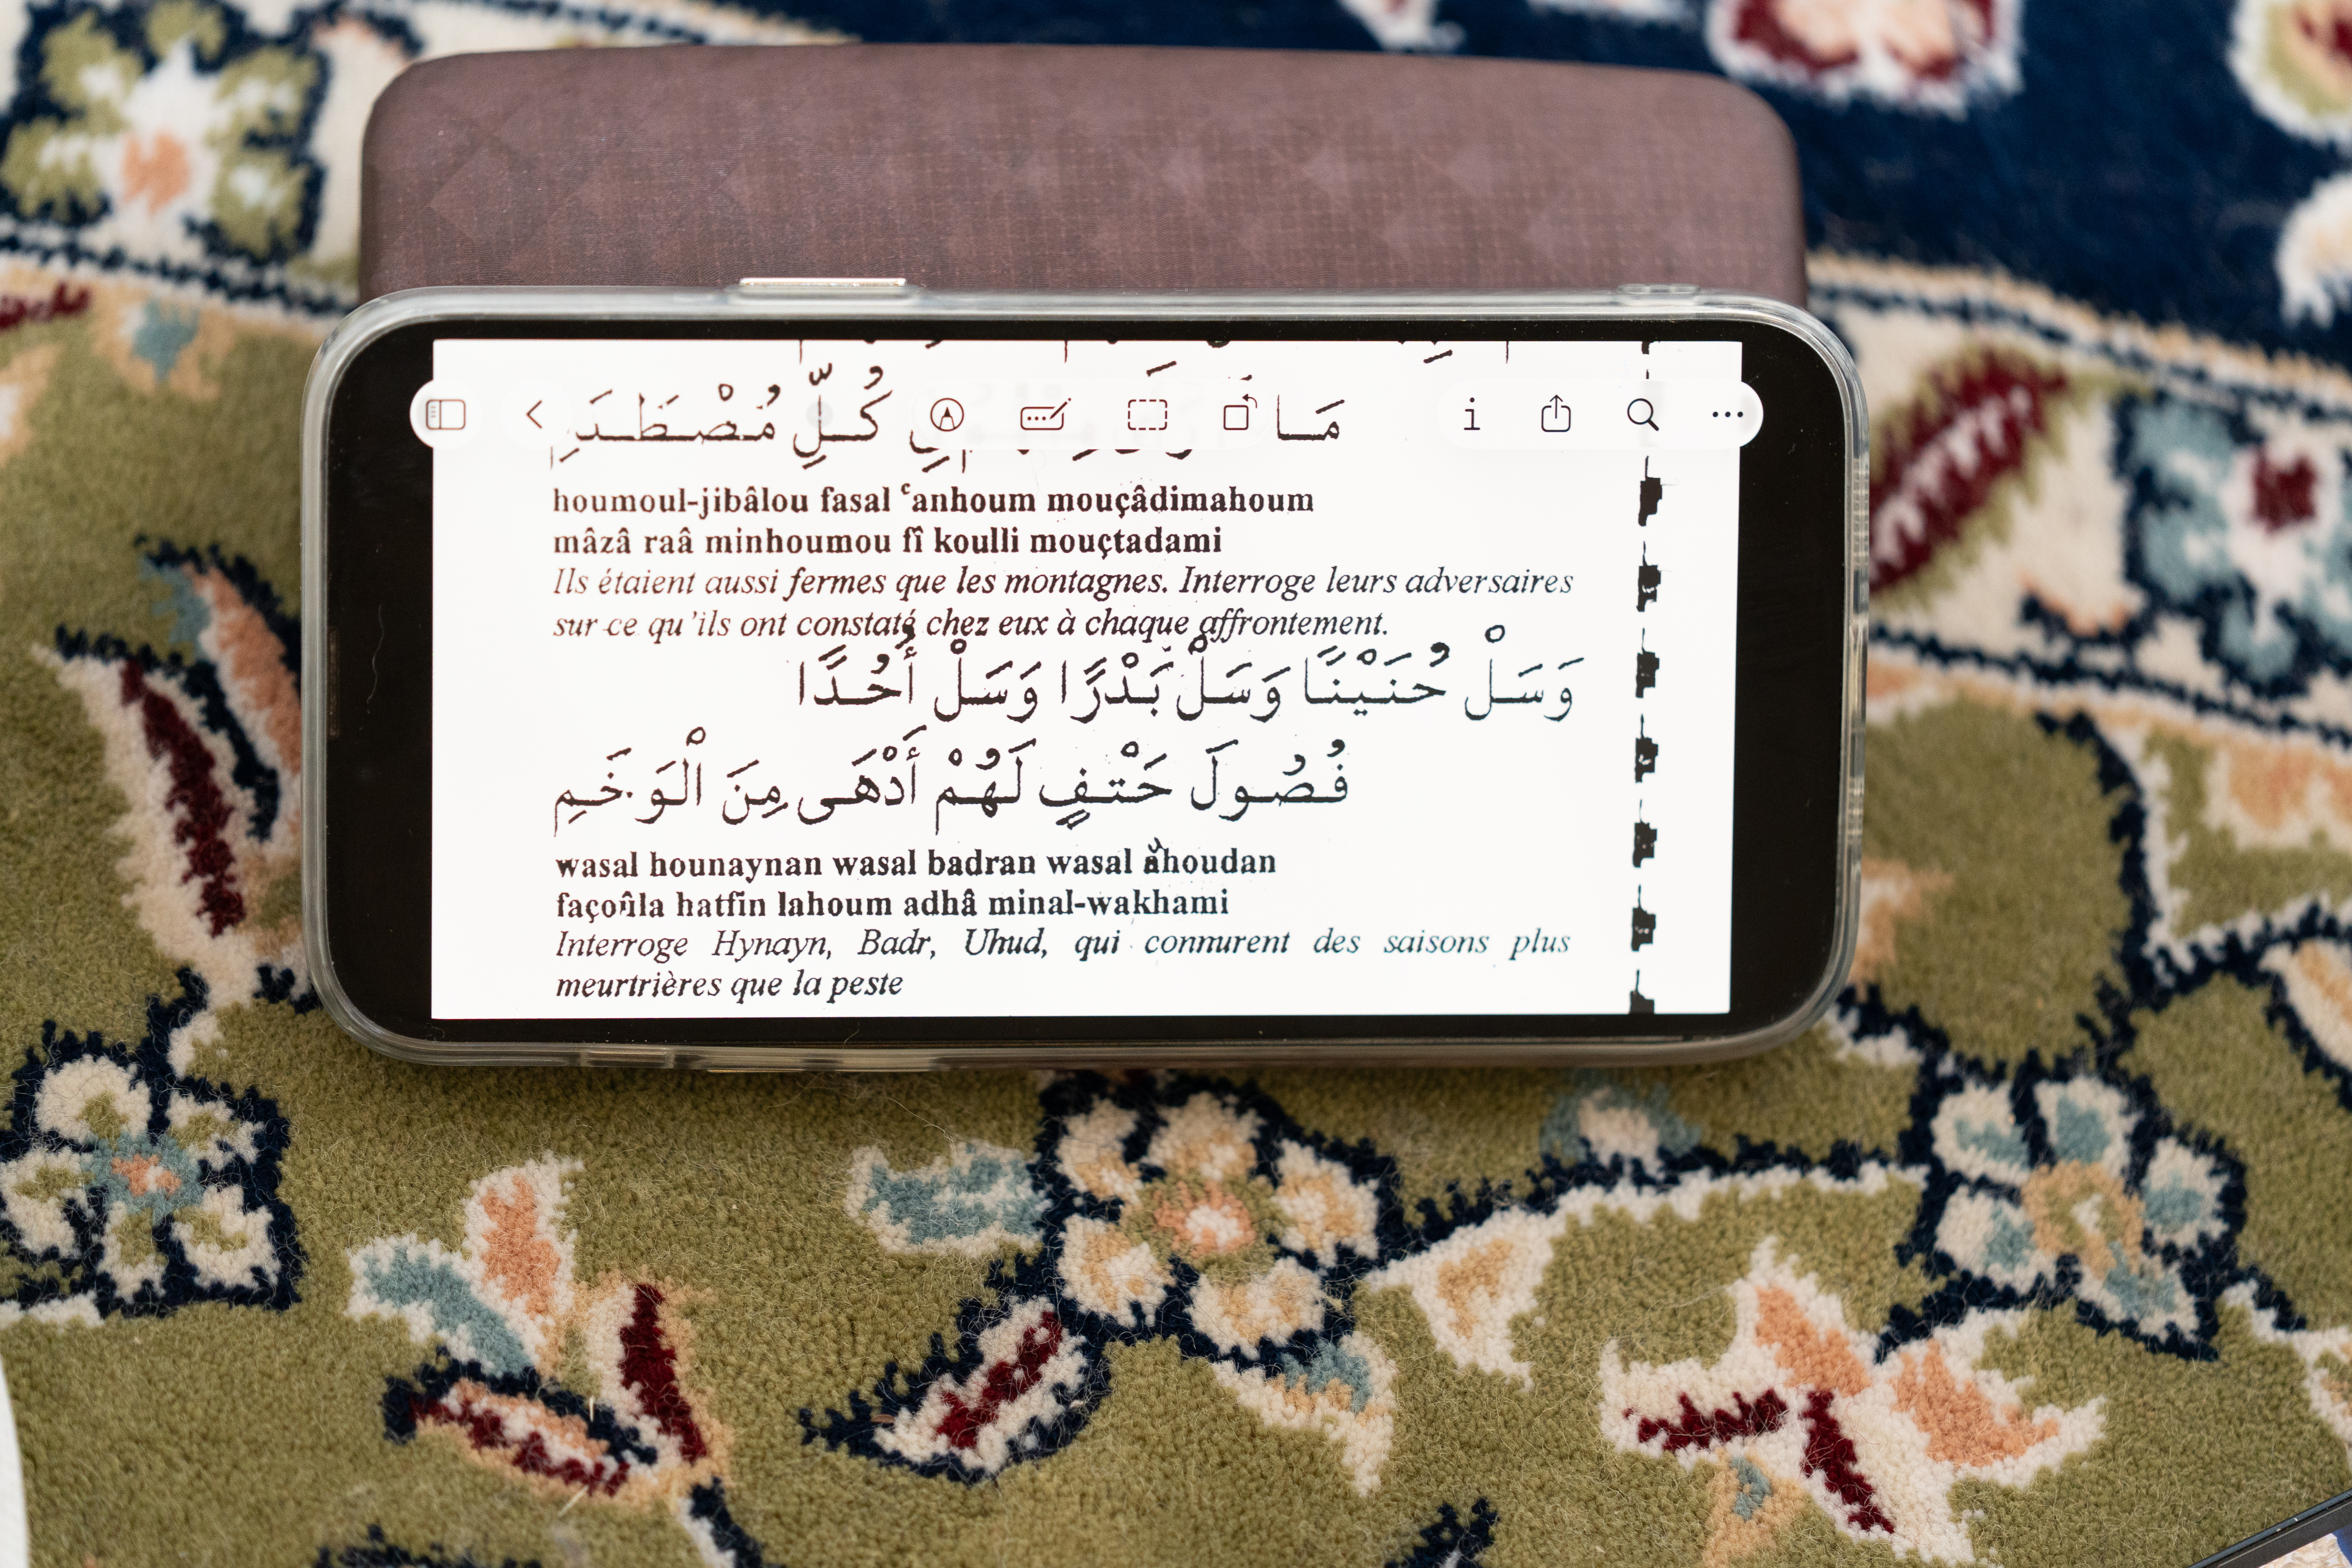 مَا كُلِّ مُصْطَدَمِ
houmoul-jibâlou fasal ʿanhoum mouçâdimahoum
mâzâ raâ minhoumou fî koulli mouçtadami
Ils étaient aussi fermes que les montagnes. Interroge leurs adversaires
sur ce qu'ils ont constaté chez eux à chaque affrontement.
وَسَلْ حُنَيْنًا وَسَلْ بَدْرًا وَسَلْ أُحُدًا
فُصُولَ حَتْفٍ لَهُمْ أَدْهَى مِنَ الْوَخَمِ
wasal hounaynan wasal badran wasal ahoudan
façoûla hatfin lahoum adhâ minal-wakhami
Interroge Hynayn, Badr, Uhud, qui connurent des saisons plus
meurtrières que la peste